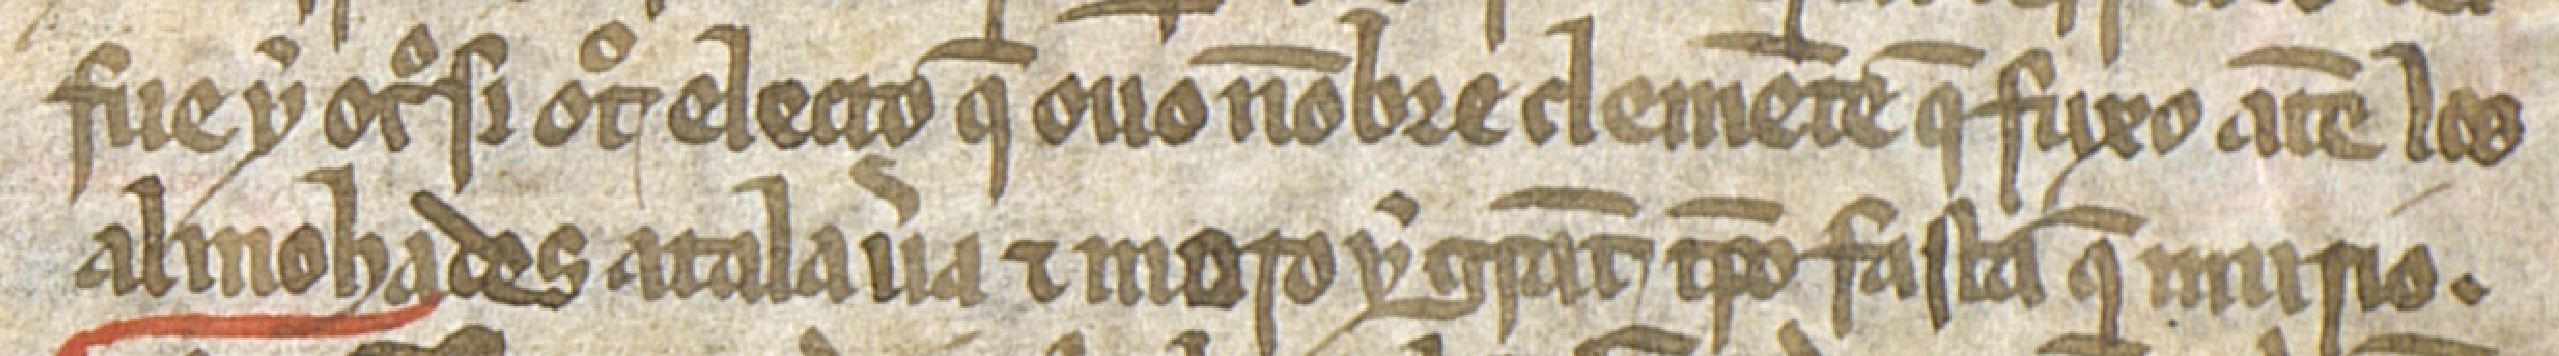 fue ẏ otͦ si otͦ electo q̄ ouo nōbre clemēte q̄ fuyxo ātē los
almohades a talau̾a ⁊ moro ẏ grāt tp̄o fasta q̄ murio.